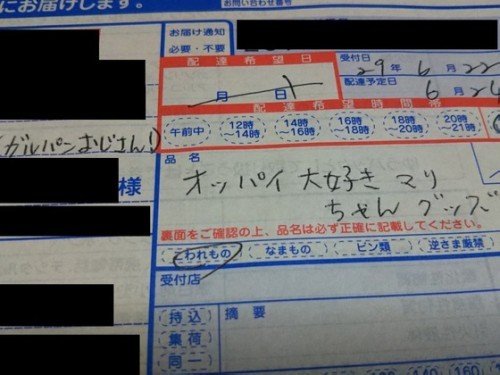 にお届けします。
お問い合わせ番号
お届け通知
必要・不要
配達希望日
月 日
受付日
29年 6月 22
配達予定日
6月 24
(ガルパンおじさん)
様
配達希望時間帯
午前中
12時~14時
14時~16時
16時~18時
18時~20時
20時~21時
品名
オッパイ大好きマリ
ちゃんグッズ
裏面をご確認の上、品名は必ず正確に記載してください。
われもの なまもの ビン類 逆さま厳禁
受付店
持込
集荷
同一
摘要
120 140 160